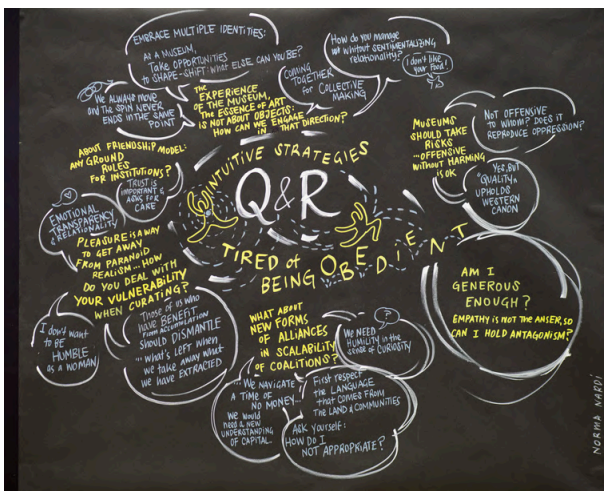 EMBRACE MULTIPLE IDENTITIES:
AS A MUSEUM,
TAKE OPPORTUNITIES
to SHAPE-SHIFT: WHAT ELSE CAN YOU BE?
How do you manage
without SENTIMENTALIZING
relationality?
I don't like
your Food!
COMING
TOGETHER
for COLLECTIVE
MAKING
WE ALWAYS MOVE
and THE SPIN NEVER
ENDS IN THE SAME
POINT
The
EXPERIENCE
OF THE MUSEUM,
THE ESSENCE OF ART
IS NOT ABOUT OBJECTS:
HOW CAN WE ENGAGE
IN THAT DIRECTION?
MUSEUMS
SHOULD TAKE
RISKS
...OFFENSIVE
WITHOUT HARMING
IS OK
NOT OFFENSIVE
TO WHOM? DOES IT
REPRODUCE OPPRESSION?
YES, BUT
"QUALITY"
UPHOLDS
WESTERN
CANON
ABOUT FRIENDSHIP MODEL:
ANY GROUND
RULES
FOR INSTITUTIONS?
TRUST IS
IMPORTANT &
ASKS FOR
CARE
EMOTIONAL
TRANSPARENCY
& RELATIONALITY
INTUITIVE STRATEGIES
Q&R
TIRED of
BEING OBEDIENT
PLEASURE IS A WAY
TO GET AWAY
FROM PARANOID
REALISM... HOW
DO YOU DEAL WITH
YOUR VULNERABILITY
WHEN CURATING?
I don't want
to BE
HUMBLE
as a WOMAN
Those of us who
have BENEFIT
FROM ACCUMULATION
SHOULD DISMANTLE
... what's LEFT when
we TAKE AWAY what
we HAVE EXTRACTED
WHAT ABOUT
NEW FORMS
OF ALLIANCES
IN SCALABILITY
OF COALITIONS?
?
WE NEED
HUMILITY in the
SENSE OF CURIOSITY
...WE NAVIGATE
A TIME OF
NO MONEY...
WE WOULD
need a NEW
UNDERSTANDING
OF CAPITAL.
First respect
the LANGUAGE
that COMES FROM
THE LAND & COMMUNITIES
ASK yourself:
HOW DO I
NOT APPROPIATE?
AM I
GENEROUS
ENOUGH?
EMPATHY IS NOT THE ANSER, SO
CAN I HOLD ANTAGONISM?
NORMA NARDI